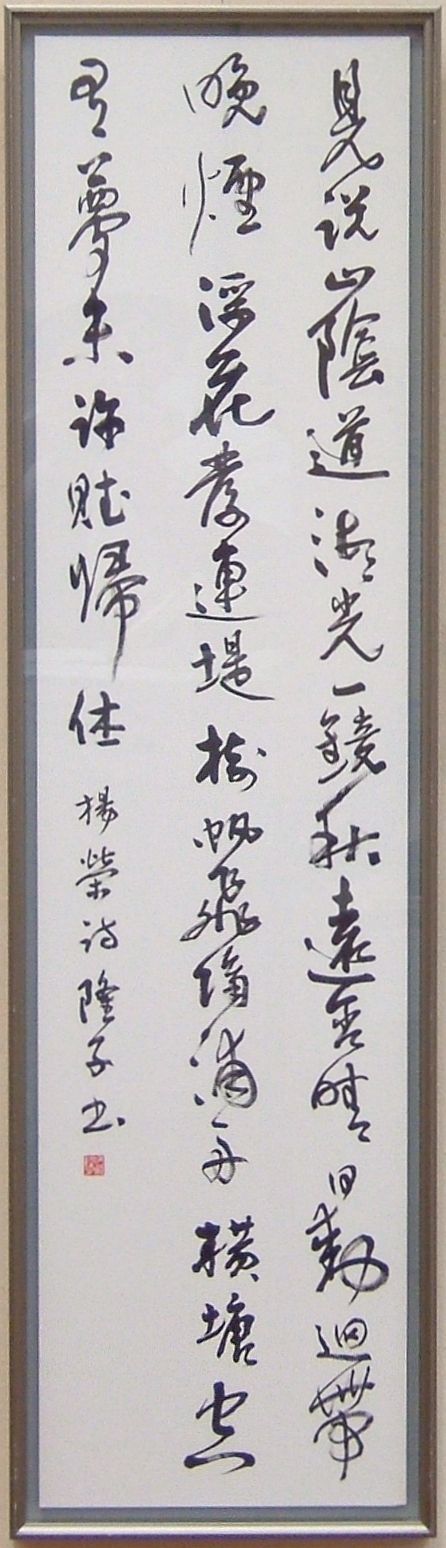 見説山陰道湖光一鏡秋遠含晴日動迴帶
晚煙浮花發連堤樹帆飛隔浦舟横塘空
有夢未許賦帰休 楊榮詩隆子書